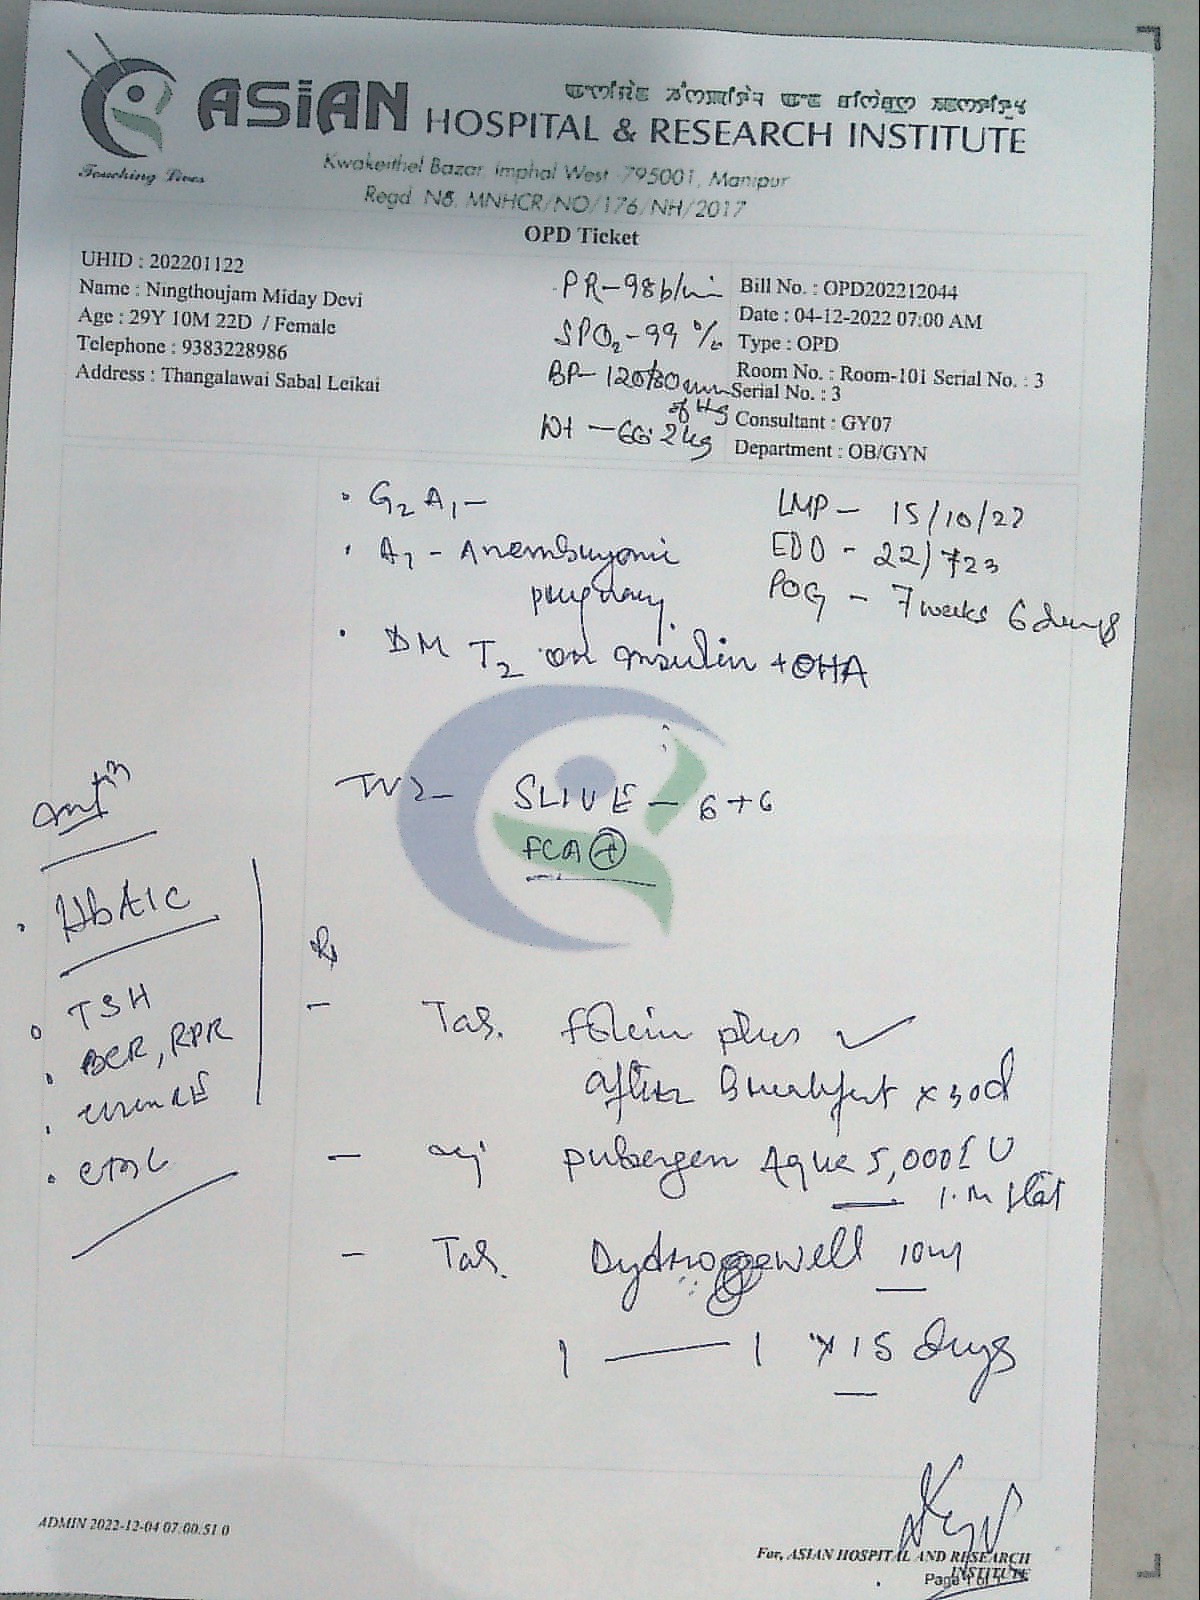 ASiAN HOSPITAL & RESEARCH INSTITUTE
Touching Lives
Kwakeithel Bazar, Imphal West - 795001, Manipur
Regd. No. MNHCR/NO/176/NH/2017
OPD Ticket
UHID : 202201122
Name : Ningthoujam Miday Devi
Age : 29Y 10M 22D / Female
Telephone : 9383228986
Address : Thangalawai Sabal Leikai
PR-98b/min
SPO2-99 %
BP-120/80mm
of Hg
Wt -66.2kg
Bill No. : OPD202212044
Date : 04-12-2022 07:00 AM
Type : OPD
Room No. : Room-101 Serial No. : 3
Serial No. : 3
Consultant : GY07
Department : OB/GYN
· G2 A1 -
· A1 - Anembryonic
pregnancy
· DM T2 on insulin + OHA
LMP - 15/10/22
EDD - 22/7/23
POG - 7 weeks 6 days
SLIUE - 6+6
FCA +
· HbA1c
· TSH
RPR
· urine RE
Rx
- Tab. Folcin plus
after Breakfast x 30d
- inj pubergen Aqua 5,000IU
I.M stat
- Tab. Dydrogewell 10mg
1 — 1 x 15 days
ADMIN 2022-12-04 07:00:51.0
For, ASIAN HOSPITAL AND RESEARCH
INSTITUTE
Page 1 of 1